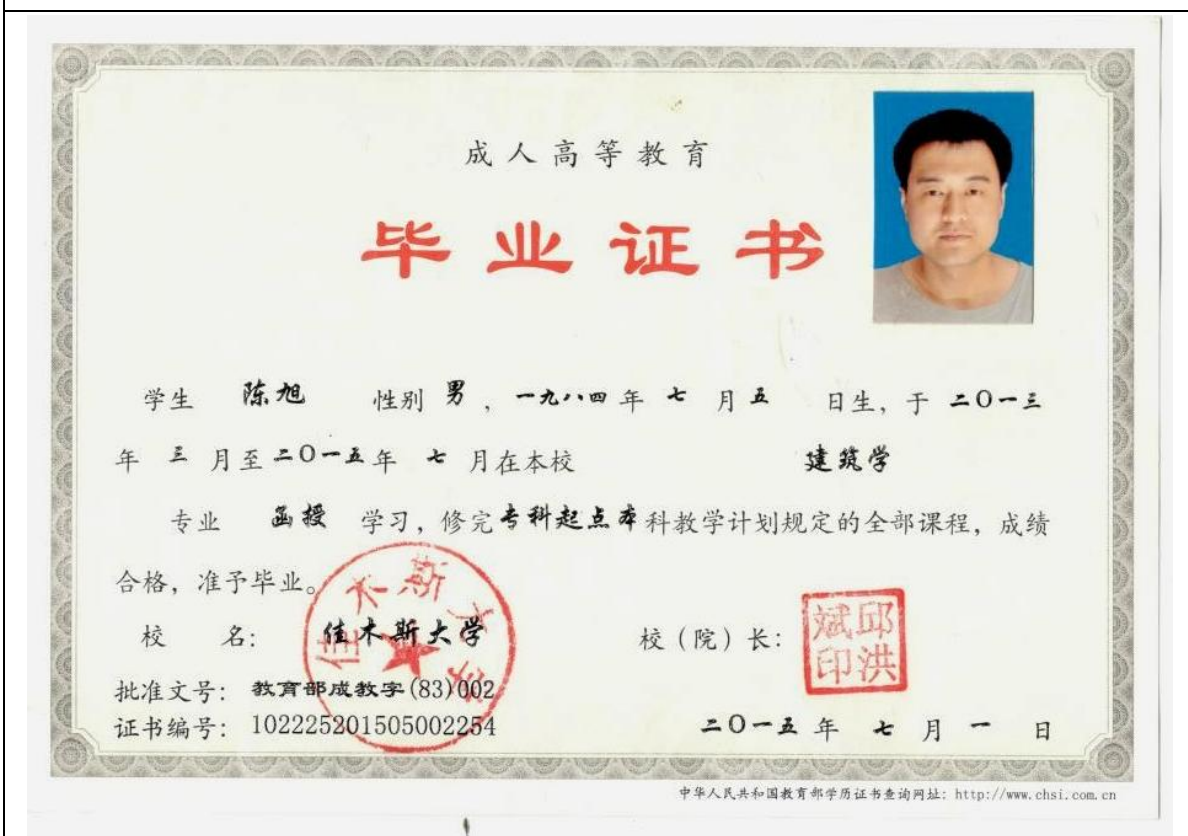 成人高等教育
毕业证书
学生 陈旭 性别 男，一九八四年 七 月 五 日生，于 二〇一三
年 三 月至 二〇一五年 七 月在本校 建筑学
专业 函授 学习，修完专科起点本科教学计划规定的全部课程，成绩
合格，准予毕业。
佳木斯大学
校 名： 佳木斯大学 校（院）长： 邱洪斌印
批准文号： 教育部成教字(83)002
证书编号： 102225201505002254 二〇一五 年 七 月 一 日
中华人民共和国教育部学历证书查询网址：http://www.chsi.com.cn